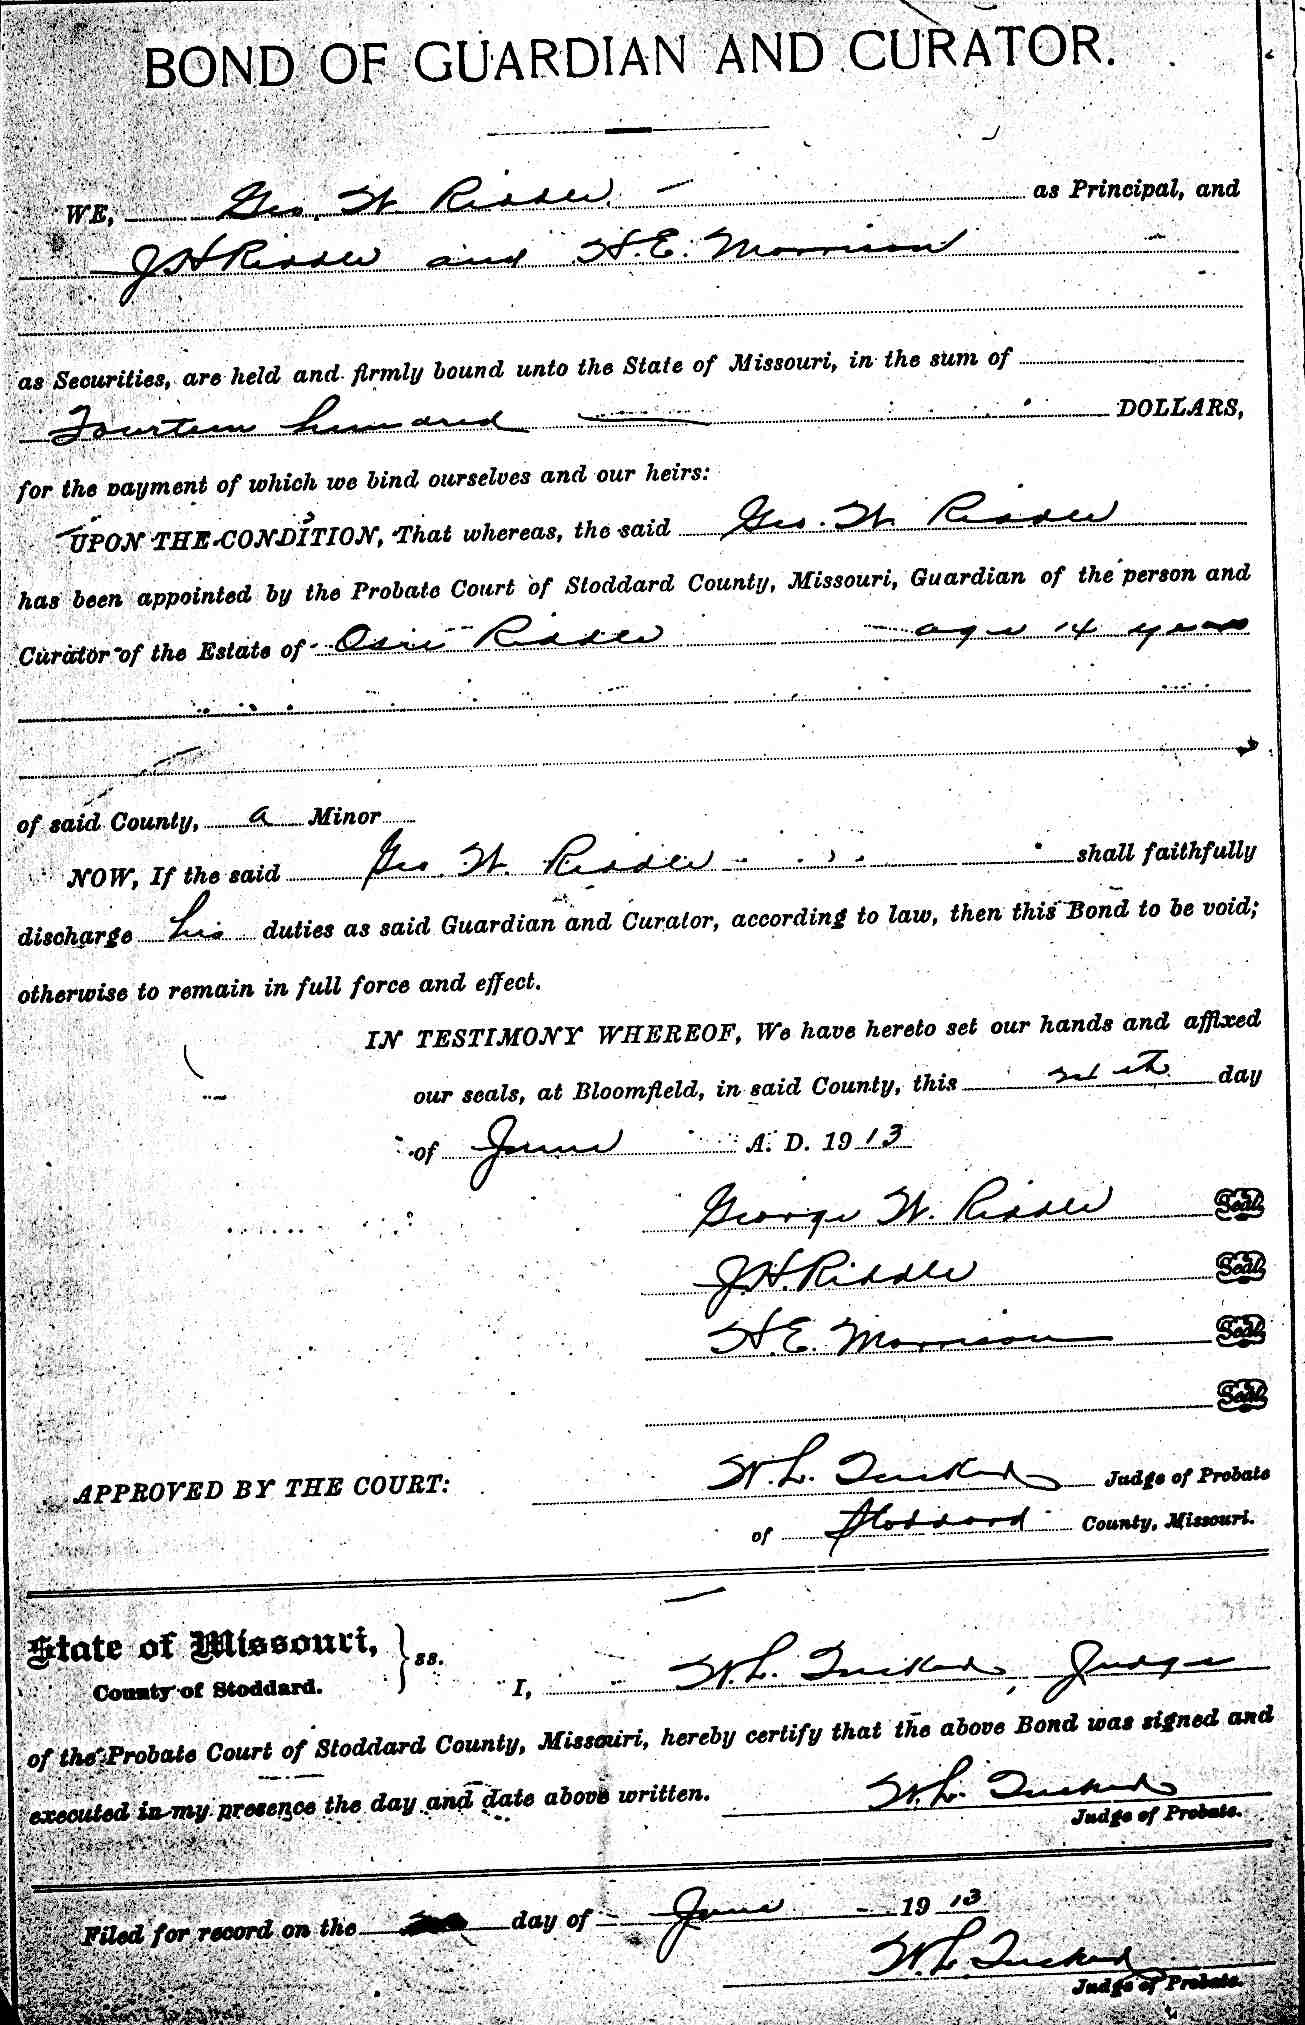 BOND OF GUARDIAN AND CURATOR.
WE, Geo. W. Riddle as Principal, and
J H Riddle and H. E. Morrison
as Securities, are held and firmly bound unto the State of Missouri, in the sum of
Fourteen hundred DOLLARS,
for the payment of which we bind ourselves and our heirs:
UPON THE CONDITION, That whereas, the said Geo. W. Riddle
has been appointed by the Probate Court of Stoddard County, Missouri, Guardian of the person and
Curator of the Estate of Osie Riddle age 14 years
of said County, a Minor
NOW, If the said Geo. W. Riddle shall faithfully
discharge his duties as said Guardian and Curator, according to law, then this Bond to be void;
otherwise to remain in full force and effect.
IN TESTIMONY WHEREOF, We have hereto set our hands and affixed
our seals, at Bloomfield, in said County, this day
of June A. D. 1913
George W. Riddle Seal
J. H. Riddle Seal
H. E. Morrison Seal
Seal
APPROVED BY THE COURT: W. L. Tucker Judge of Probate
of Stoddard County, Missouri.
State of Missouri, } ss.
County of Stoddard. I, W. L. Tucker, Judge
of the Probate Court of Stoddard County, Missouri, hereby certify that the above Bond was signed and
executed in my presence the day and date above written. W. L. Tucker
Judge of Probate.
Filed for record on the day of June 1913
W. L. Tucker
Judge of Probate.